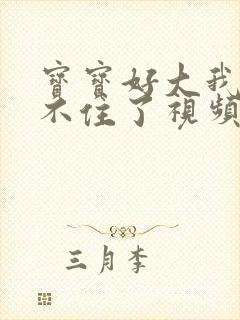 寶寶好大我
不住了視頻
三月李